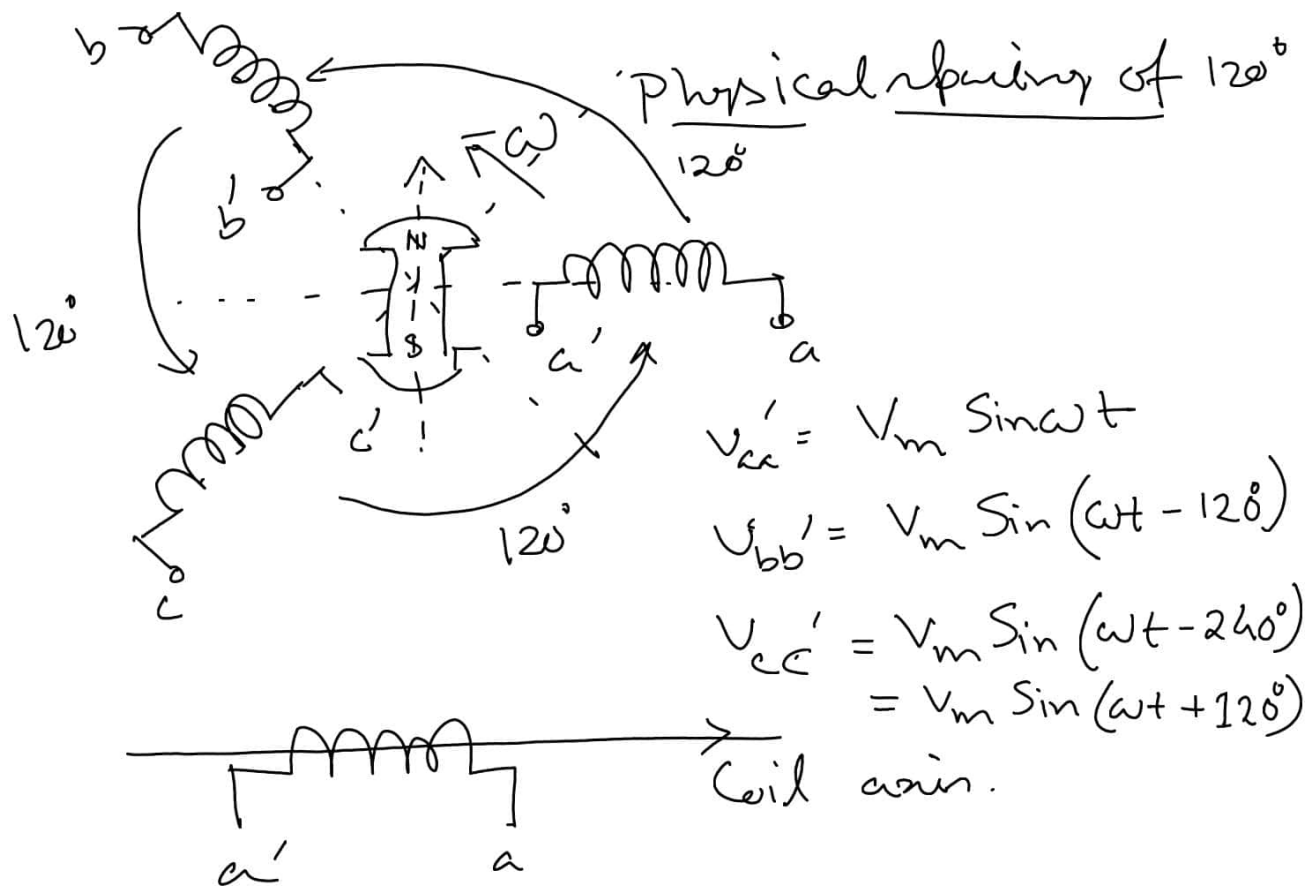 b
Physical spacing of 120°
ω
120°
b'
N
120°
S
a'
a
c'
V_aa' = V_m Sin ωt
120°
V_bb' = V_m Sin (ωt - 120°)
c
V_cc' = V_m Sin (ωt - 240°)
= V_m Sin (ωt + 120°)
Coil axis.
a'
a